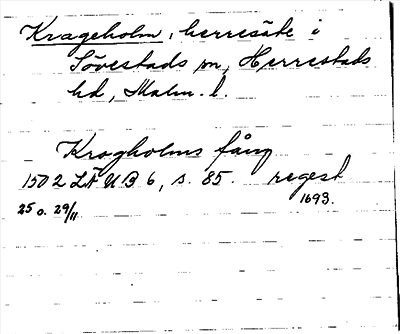 Krageholm, herresäte i
Sövestads sn, Herrestads
hd, Malm. l.
Kragholms fång
1502 LÄUB 6, s. 85. regest
25 o. 29/11 1693.